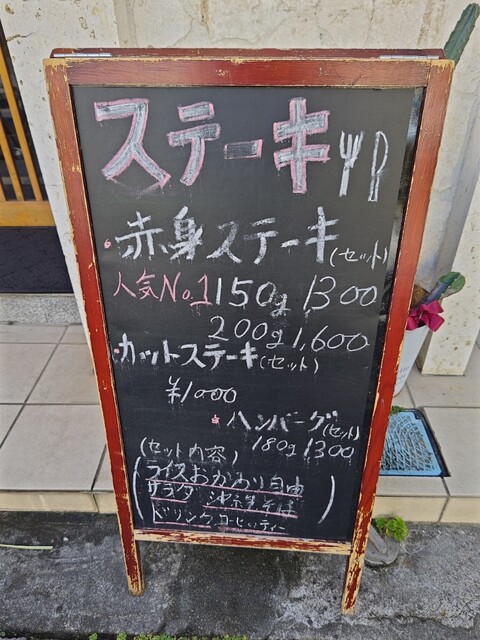 ステーキ
・赤身ステーキ(セット)
人気No.1 150g 1300
200g 1,600
・カットステーキ(セット)
¥1000
・ハンバーグ(セット)
180g 1300
(セット内容)
ライスおかわり自由
サラダ 沖縄そば
ドリンク コーヒーティー